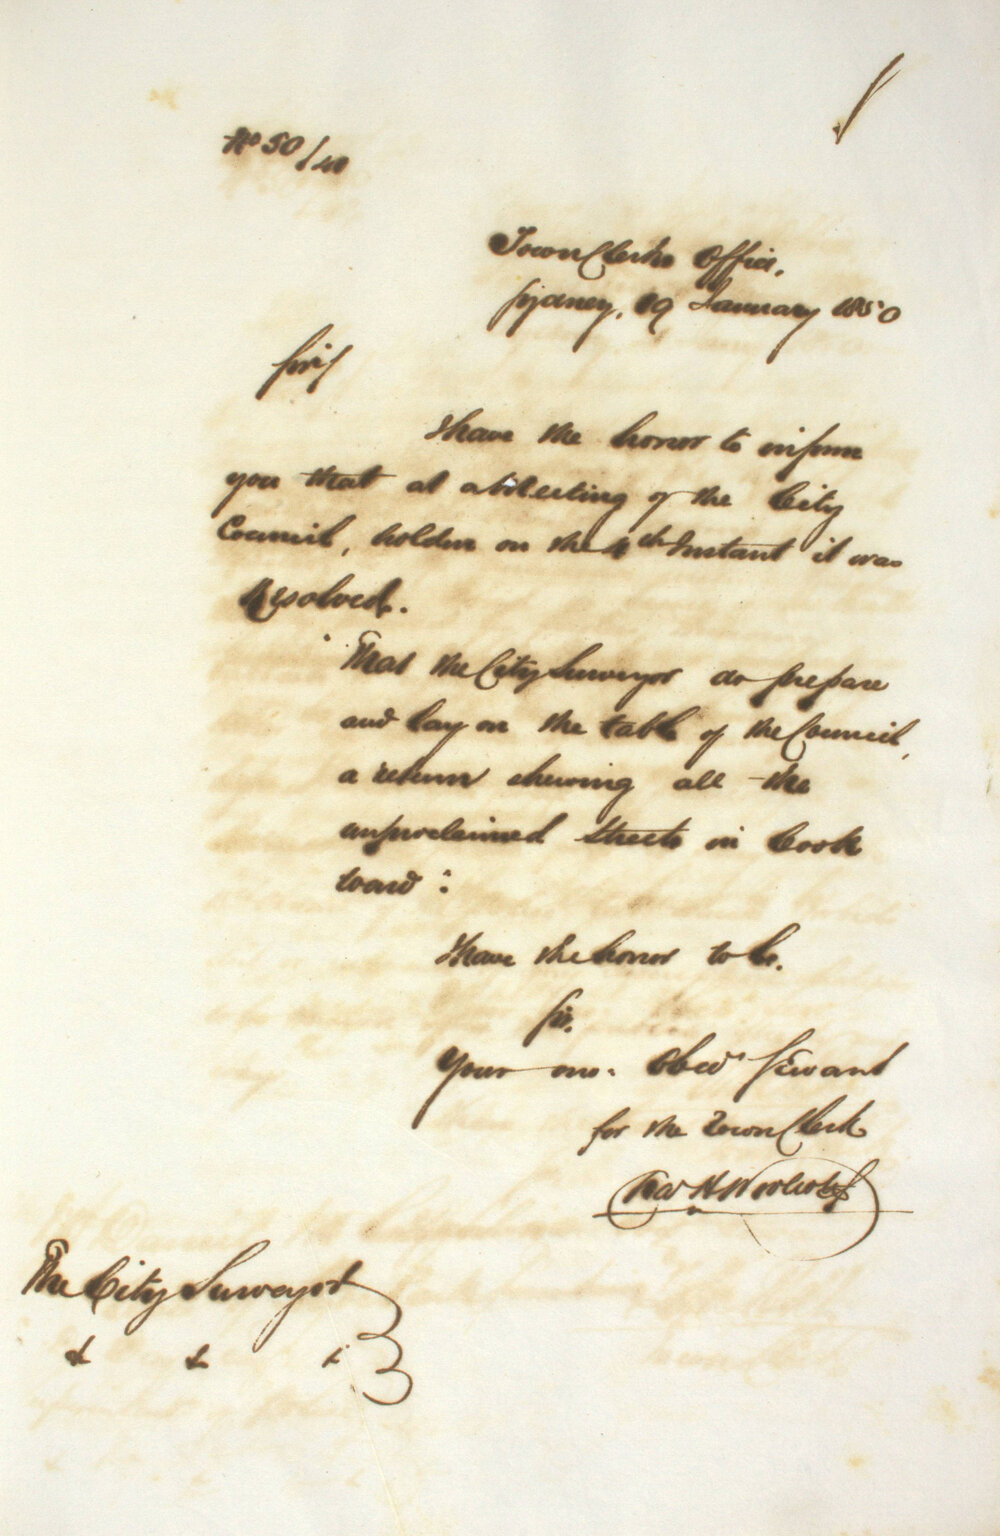 No 50/40
Town Clerks Office,
Sydney, 19 January 1850
Sir/
I have the honor to inform
you that at a Meeting of the City
Council, holden on the 4th Instant it was
Resolved.
"That the City Surveyor do prepare
and lay on the table of the Council,
a return shewing all the
unproclaimed Streets in Cook
Ward:
I have the honor to be.
Sir.
Your mo. Obedt Servant
for the Town Clerk
The City Surveyor
& & &